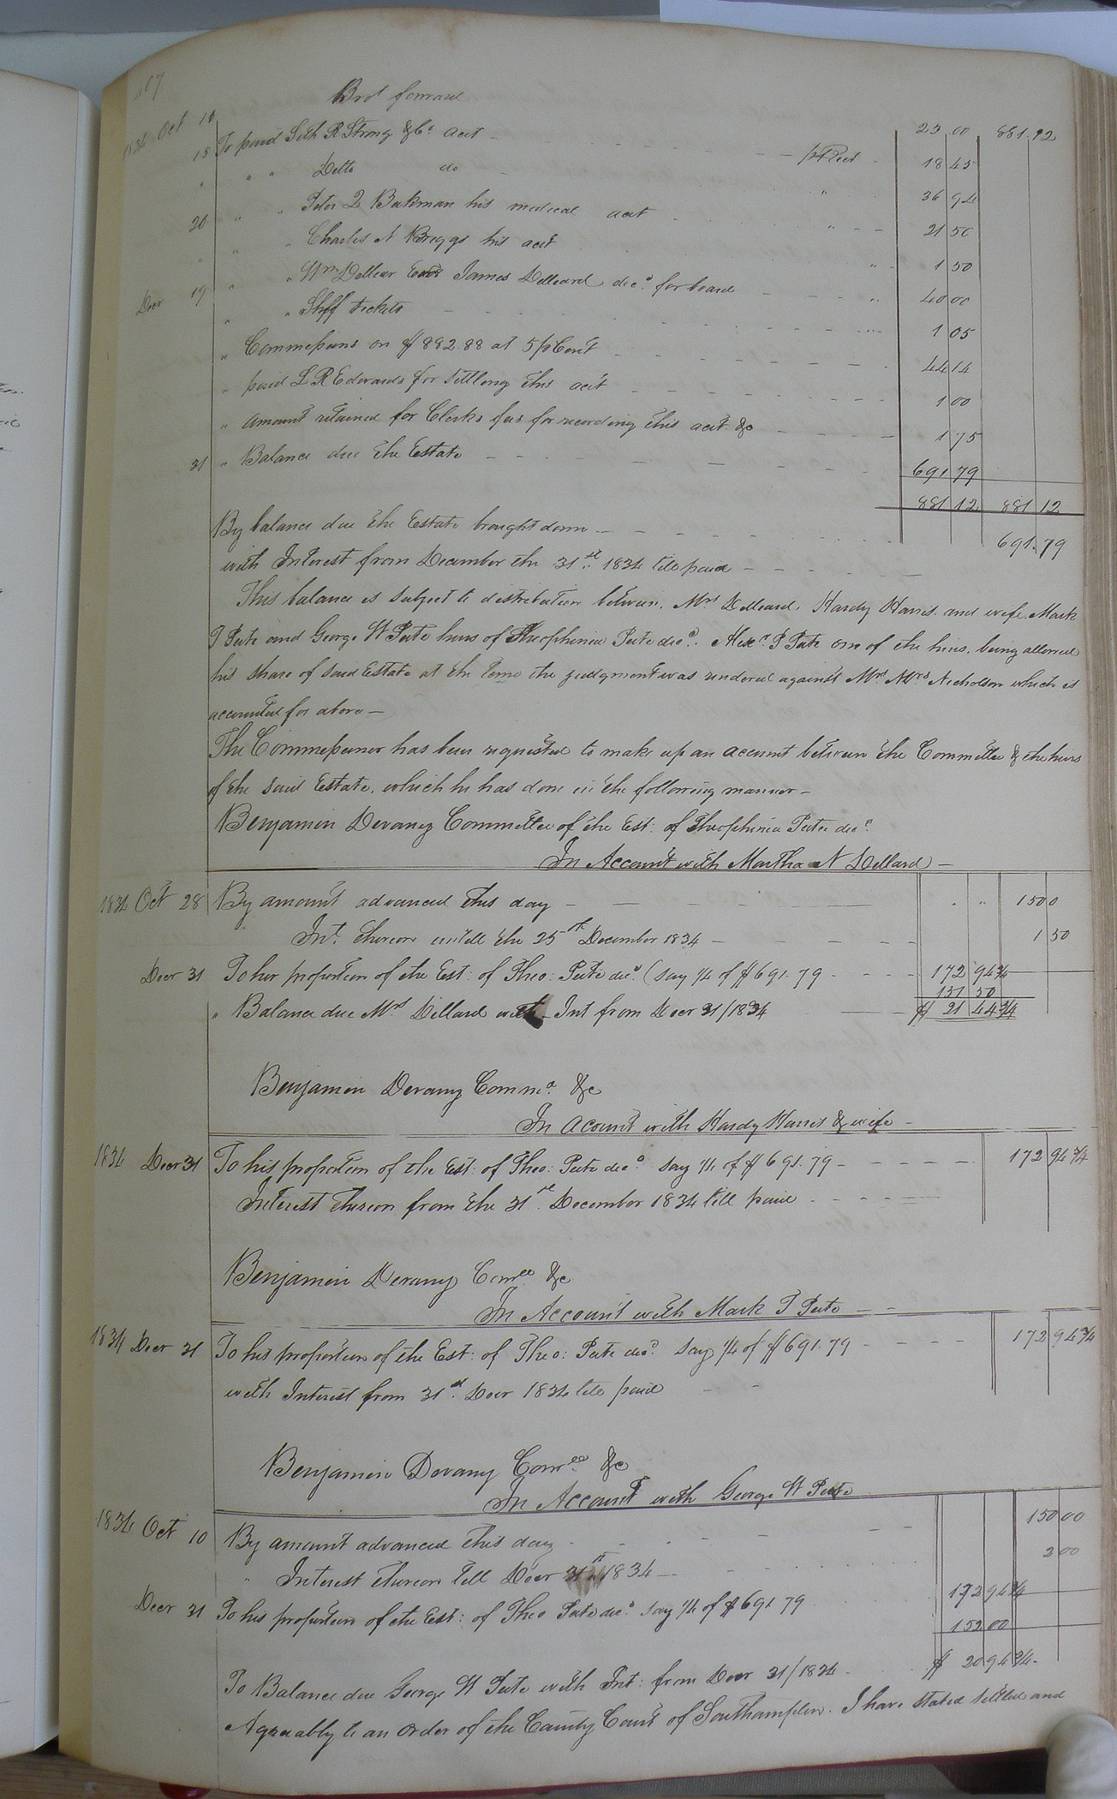 Brot forward 23.00 881.12
1834 Oct 10 To paid Seth R Strong & Co acct pr Rect 18 45
15 " " Ditto do " 36 94
20 " " Peter Q Barkman his medical acct " 21 50
" " Charles N Briggs his acct " 1 50
" " Wm Dellear James Dilliard decd for board " 40 00
Decr 19 " " Shff tickets 1 05
" Commissions on $882.88 at 5 pr Cent 44 14
" paid L R Edwards for settling this acct 1 00
" amount retained for Clerks fees for recording this acct &c 1 75
31 " Balance due the Estate 691 79
881 12 881 12
By balance due the Estate brought down 691.79
with Interest from December the 31st 1834 till paid
This balance is subject to distribution between Mrs Dilliard, Hardy Harris and wife, Mark
T Pete and George W Pete heirs of Theophinia Pete decd. Alexr P Pete one of the heirs, being allowed
his share of said Estate at the time the judgment was rendered against Mrs Nicholson which is
accounted for above
The Commissioner has been requested to make up an account between the Committee & the heirs
of the said Estate, which he has done in the following manner
Benjamin Devany Committee of the Est: of Theophinia Pete decd
In Account with Martha N Dillard
1834 Oct 28 By amount advanced this day " 150 0
Int. thereon untill the 25th December 1834 1 50
Decr 31 To her proportion of the Est: of Theo: Pete decd (say 1/4 of $691.79 172 94 3/4
151 50
" Balance due Mrs Dillard with Int from Decr 31/1834 $ 21 44 3/4
Benjamin Devany Comme &c
In acount with Hardy Harris & wife
1834 Decr 31 To his proportion of the Est: of Theo: Pete decd say 1/4 of $691.79 172 94 3/4
Interest thereon from the 31st December 1834 till paid
Benjamin Devany Comee &c
In Account with Mark T Pete
1834 Decr 31 To his proportion of the Est: of Theo: Pete decd. say 1/4 of $691.79 172 94 3/4
with Interest from 31st Decr 1834 till paid
Benjamin Devany Comee &c
In Account with George W Pete
1834 Oct 10 By amount advanced this day 150 00
" Interest thereon till Decr 31st 1834 2 00
Decr 31 To his proportion of the Est: of Theo Pete decd say 1/4 of $691 79 172 94 3/4
152 00
To Balance due George W Pete with Int: from Decr 31/1834 $ 20 94 3/4
Agreeably to an order of the County Court of Southampton. I have stated settled and